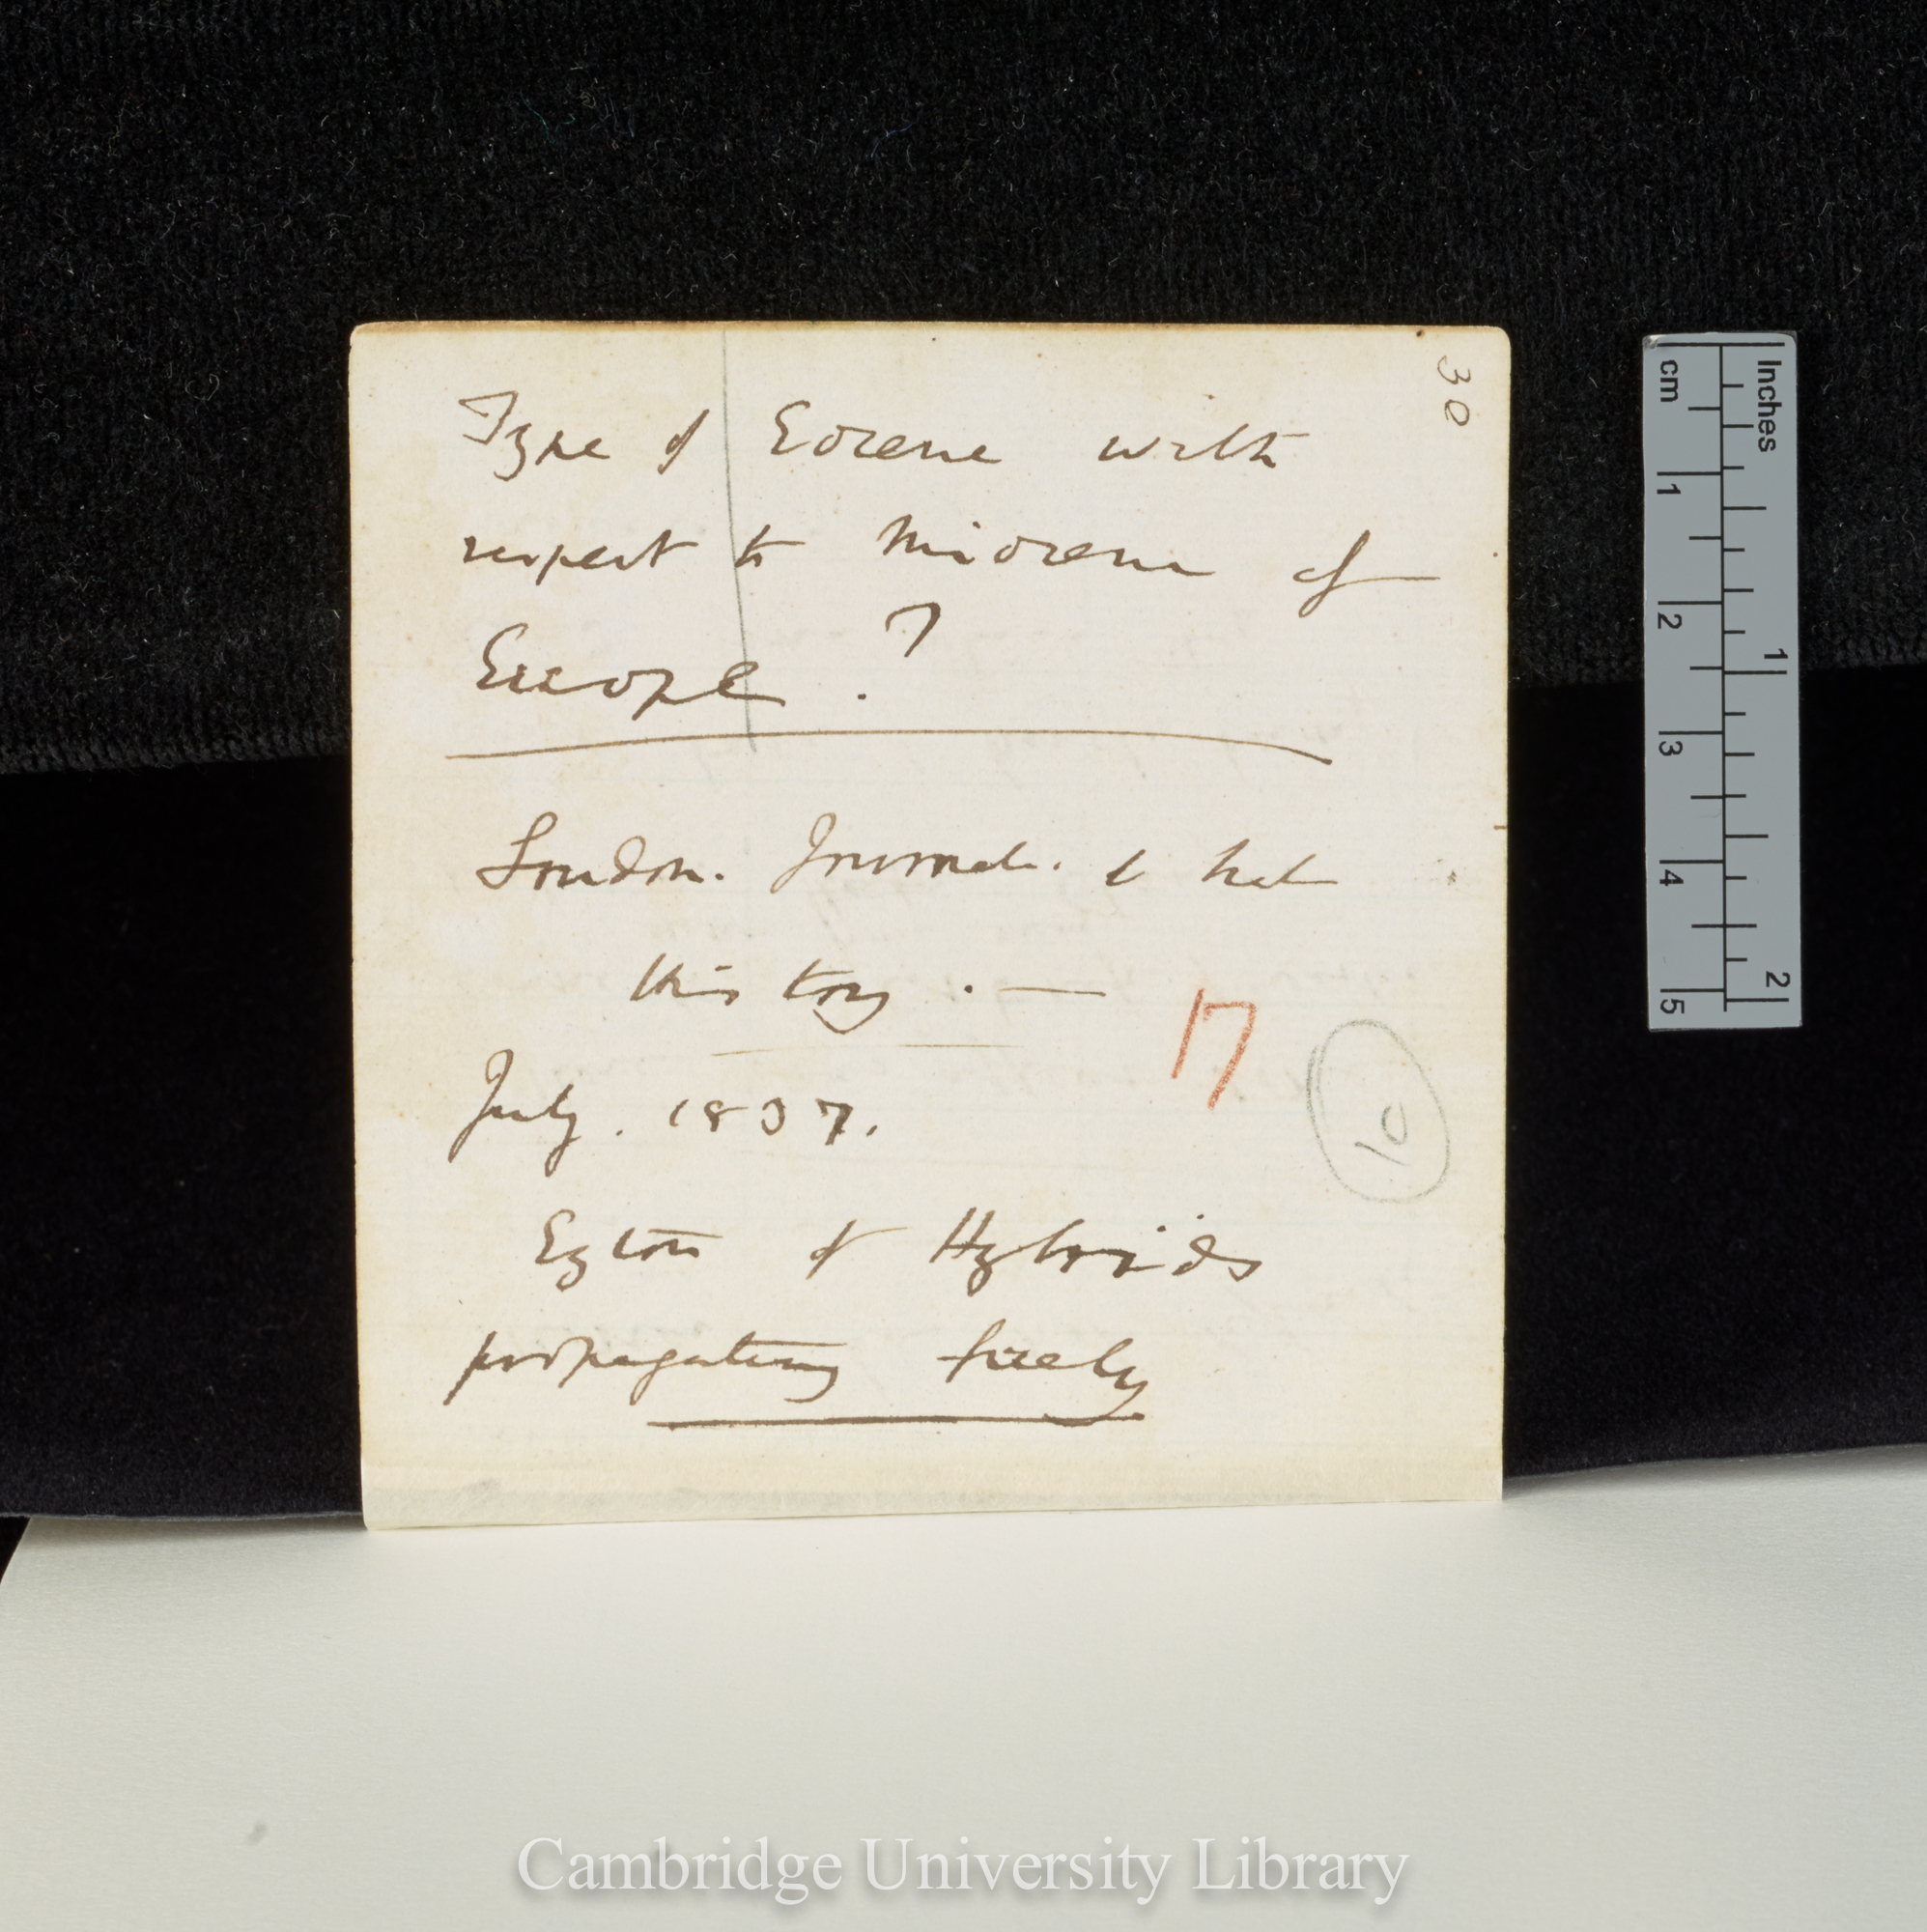 30
Type of Eocene with
respect to Miocene of
Europe ?
London. Journal. of Nat
History. —
17
10
July. 1837.
Eyton of Hybrids
propagating freely
Inches
cm
1
2
3
4
5
1
2
Cambridge University Library